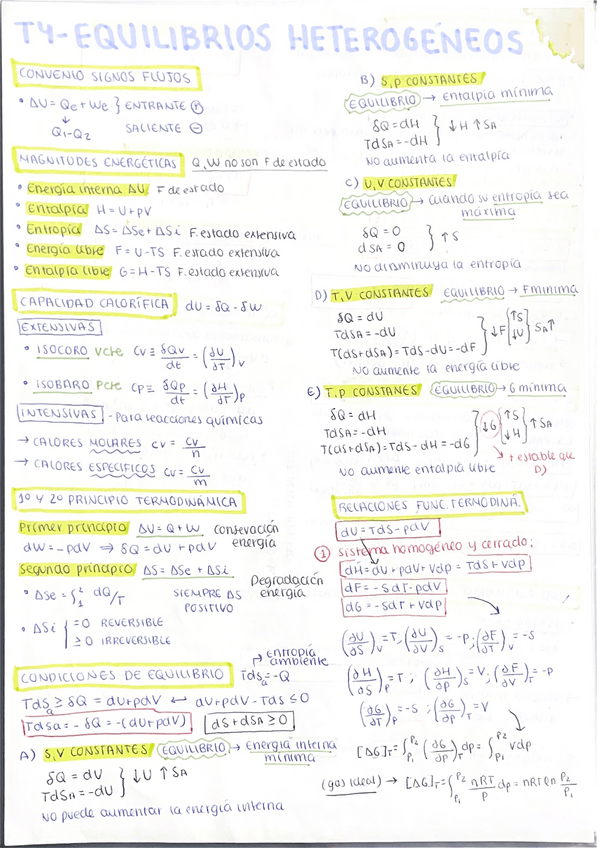 T4-EQUILIBRIOS HETEROGÉNEOS
CONVENIO SIGNOS FLUJOS
• ΔU = Qe + We } ENTRANTE ⊕
↓
Q1-Q2 SALIENTE ⊖
MAGNITUDES ENERGÉTICAS Q, W no son F de estado
• Energía interna ΔU F de estado
• Entalpía H = U + pV
• Entropía ΔS = ΔSe + ΔSi F. estado extensiva
• Energía libre F = U-TS F. estado extensiva
• Entalpía libre G = H-TS F. estado extensiva
CAPACIDAD CALORÍFICA dU = δQ - δW
EXTENSIVAS
• ISOCORO Vcte Cv ≡ δQv/dt = (∂U/∂T)v
• ISOBARO Pcte Cp ≡ δQp/dt = (∂H/∂T)p
INTENSIVAS - Para reacciones químicas
→ CALORES MOLARES cv = Cv/n
→ CALORES ESPECÍFICOS cv = Cv/m
1º Y 2º PRINCIPIO TERMODINÁMICA
Primer principio ΔU = Q + W conservación energía
dW = -pdV ⇒ δQ = dU + pdV
Segundo principio ΔS = ΔSe + ΔSi Degradación energía
• ΔSe = ∫₁² dQ/T SIEMPRE ΔS POSITIVO
• ΔSi { = 0 REVERSIBLE
≥ 0 IRREVERSIBLE
CONDICIONES DE EQUILIBRIO TdSa = -Q → entropía ambiente
TdSa ≥ δQ = dU + pdV ↔ dU + pdV - TdS ≤ 0
TdSa = -δQ = -(dU + pdV) dS + dSA ≥ 0
A) S, V CONSTANTES EQUILIBRIO → Energía interna mínima
δQ = dU
TdSA = -dU } ↓U ↑SA
NO puede aumentar la energía interna
B) S, p CONSTANTES
EQUILIBRIO → entalpía mínima
δQ = dH
TdSA = -dH } ↓H ↑SA
NO aumenta la entalpía
C) U, V CONSTANTES
EQUILIBRIO → cuando su entropía sea máxima
δQ = 0
dSA = 0 } ↑S
NO disminuya la entropía
D) T, V CONSTANTES EQUILIBRIO → F mínima
δQ = dU
TdSA = -dU
T(dS+dSA) = TdS-dU = -dF } ↓F { ↑S ↓U } SA↑
NO aumente la energía libre
E) T, p CONSTANES EQUILIBRIO → G mínima
δQ = dH
TdSA = -dH
T(dS+dSA) = TdS - dH = -dG } ↓G { ↑S ↓H } ↑SA
+ estable que D)
NO aumente entalpía libre
RELACIONES FUNC. TERMODINÁ.
dU = TdS - pdV
① sistema homogéneo y cerrado:
dH = dU + pdV + Vdp = TdS + Vdp
dF = -SdT - pdV
dG = -SdT + Vdp
(∂U/∂S)v = T, (∂U/∂V)s = -p; (∂F/∂T)v = -S
(∂H/∂S)p = T; (∂H/∂p)s = V; (∂F/∂V)T = -p
(∂G/∂T)p = -S; (∂G/∂p)T = V
[ΔG]T = ∫p₁^p₂ (∂G/∂p)T dp = ∫p₁^p₂ Vdp
(gas ideal) → [ΔG]T = ∫p₁^p₂ nRT/p dp = nRT ln p₂/p₁